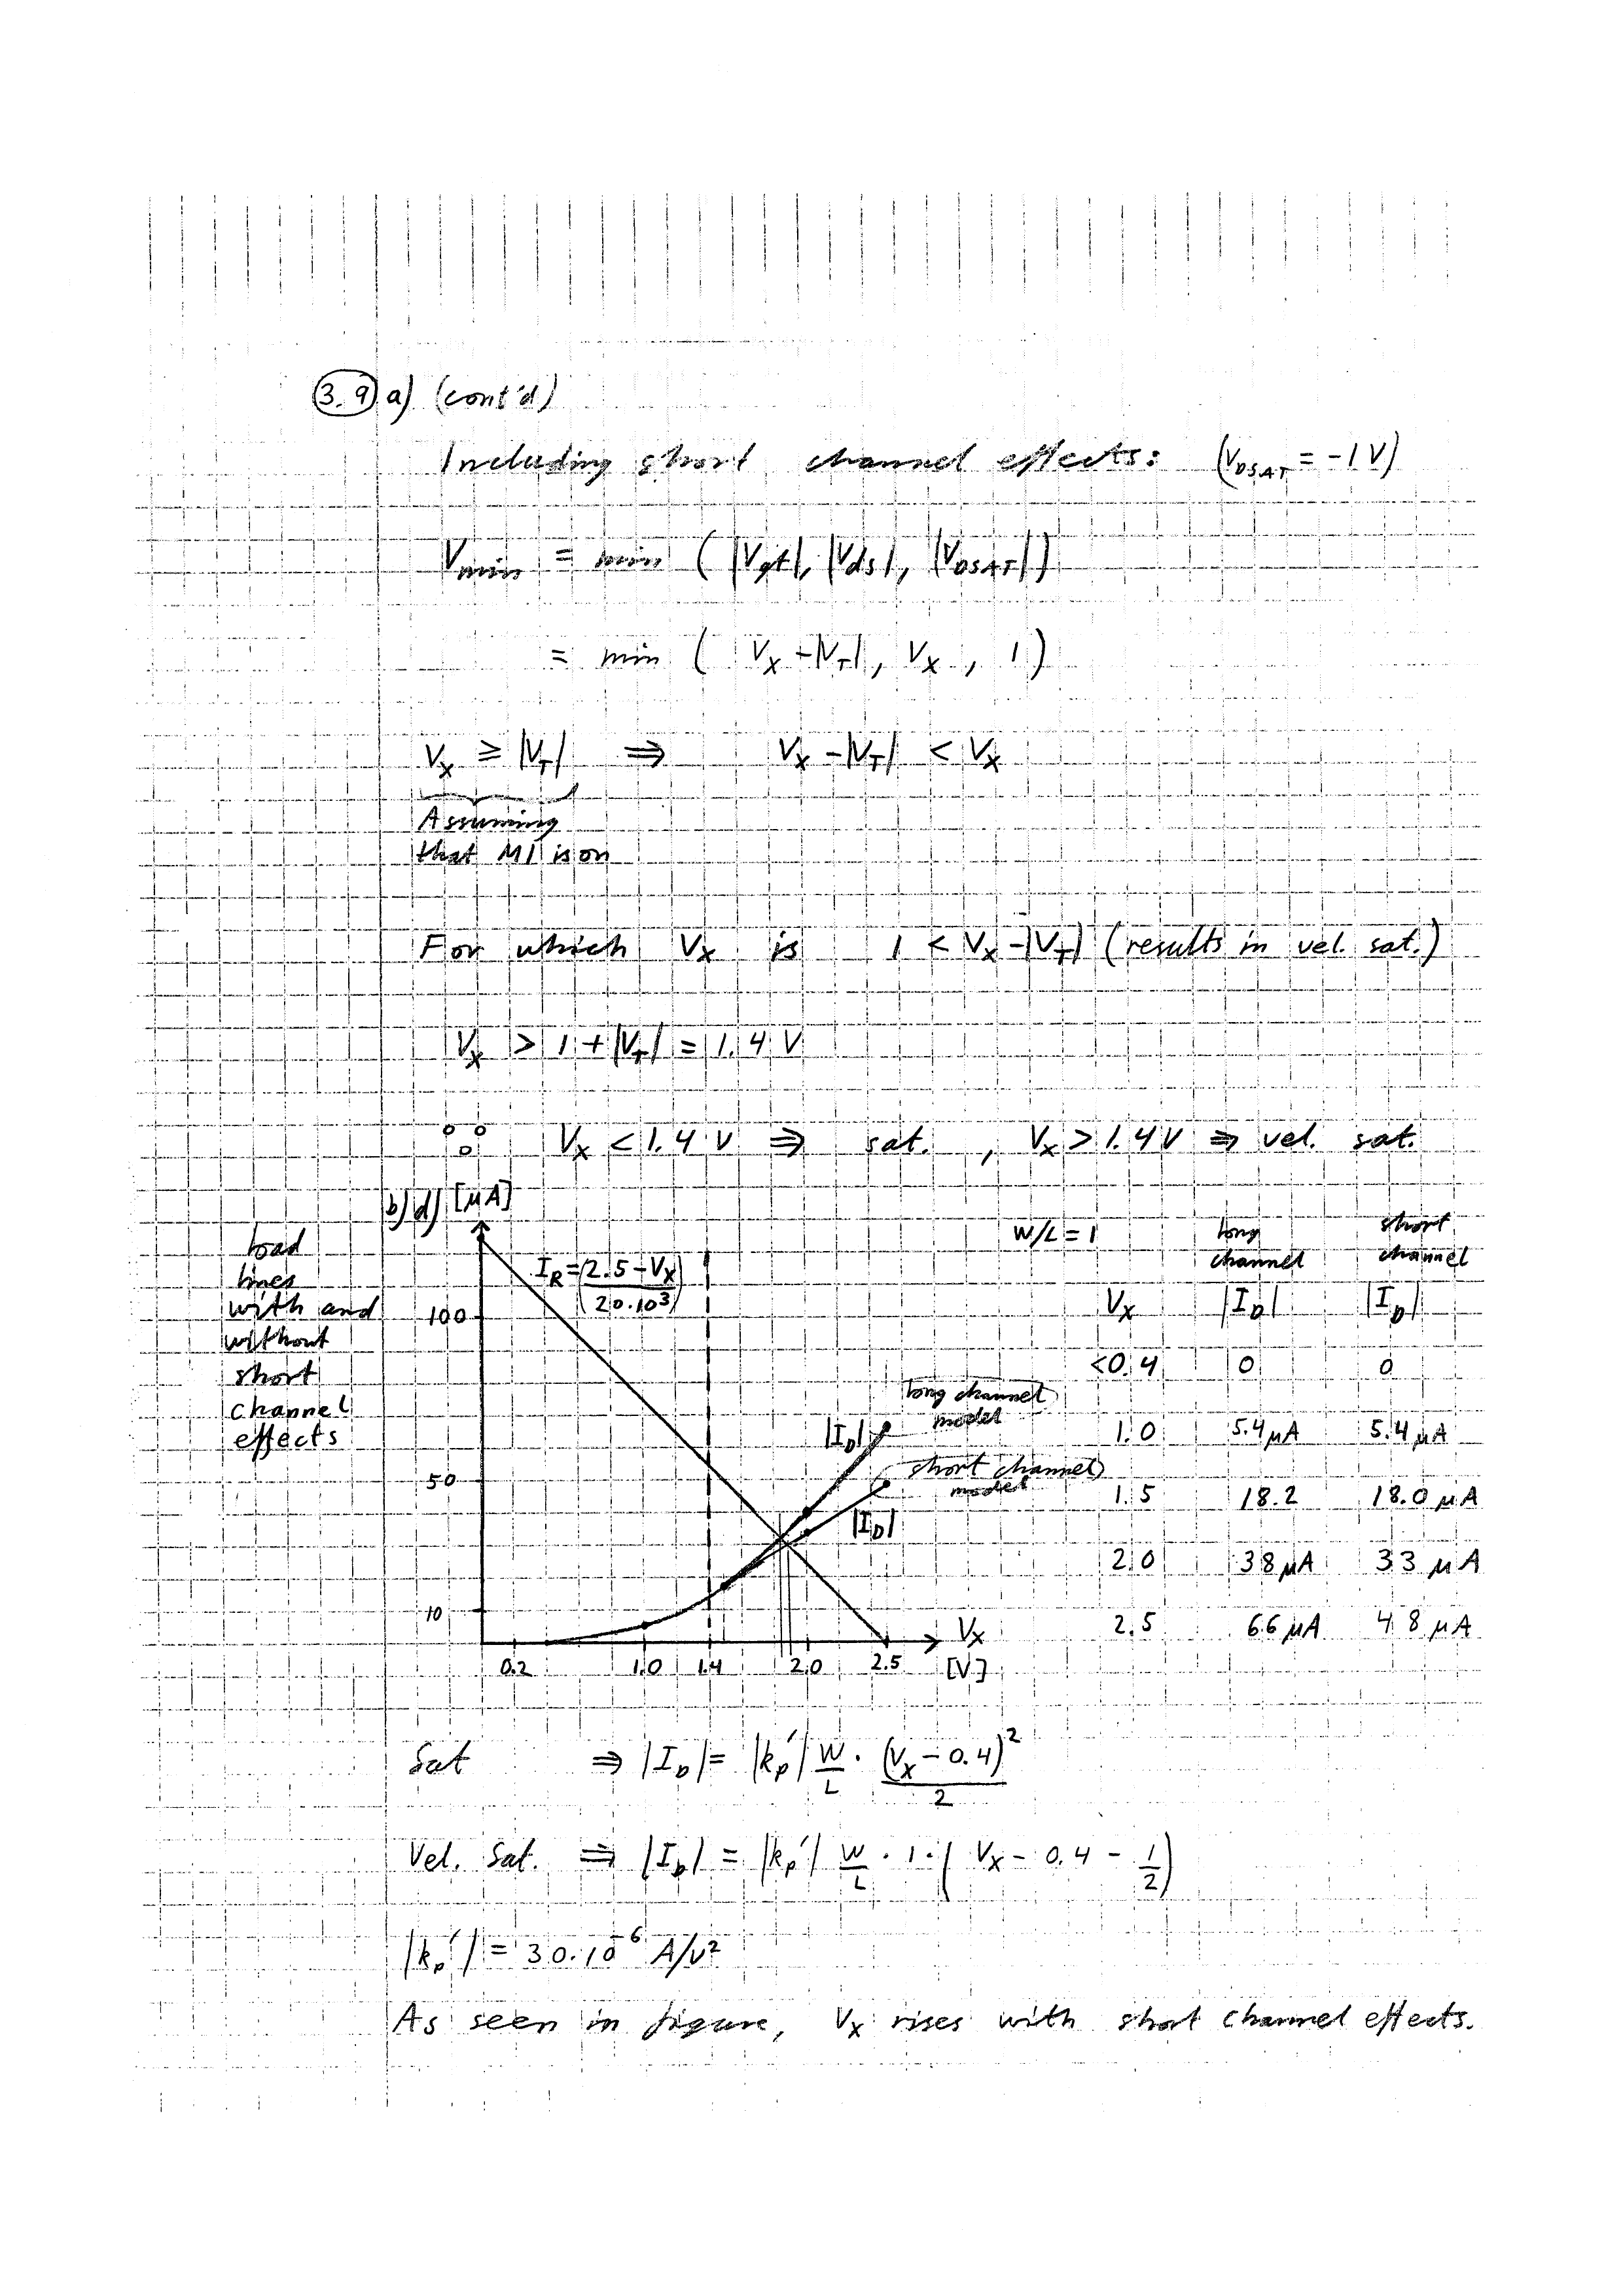 3.9 a) (cont'd)
Including short channel effects: (V_DSAT = -1 V)
V_min = min (|Vgt|, |Vds|, |V_DSAT|)
= min ( V_X - |V_T|, V_X , 1 )
V_X ≥ |V_T| ⇒ V_X - |V_T| < V_X
Assuming
that M1 is on
For which V_X is 1 < V_X - |V_T| (results in vel. sat.)
V_X > 1 + |V_T| = 1.4 V
∵ V_X < 1.4 V ⇒ sat. , V_X > 1.4 V ⇒ vel. sat.
b) d) [μA]
load
lines
with and
without
short
channel
effects
I_R = (2.5 - V_X)/(20·10³)
100
50
10
0.2 1.0 1.4 2.0 2.5
V_X
[V]
|I_D| long channel
model
short channel
model
|I_D|
W/L = 1 long channel short channel
V_X |I_D| |I_D|
<0.4 0 0
1.0 5.4 μA 5.4 μA
1.5 18.2 18.0 μA
2.0 38 μA 33 μA
2.5 66 μA 48 μA
Sat ⇒ |I_D| = |k_p'| W/L · (V_X - 0.4)²/2
Vel. Sat. ⇒ |I_D| = |k_p'| W/L · 1 · ( V_X - 0.4 - 1/2 )
|k_p'| = 30·10⁻⁶ A/V²
As seen in figure, V_X rises with short channel effects.